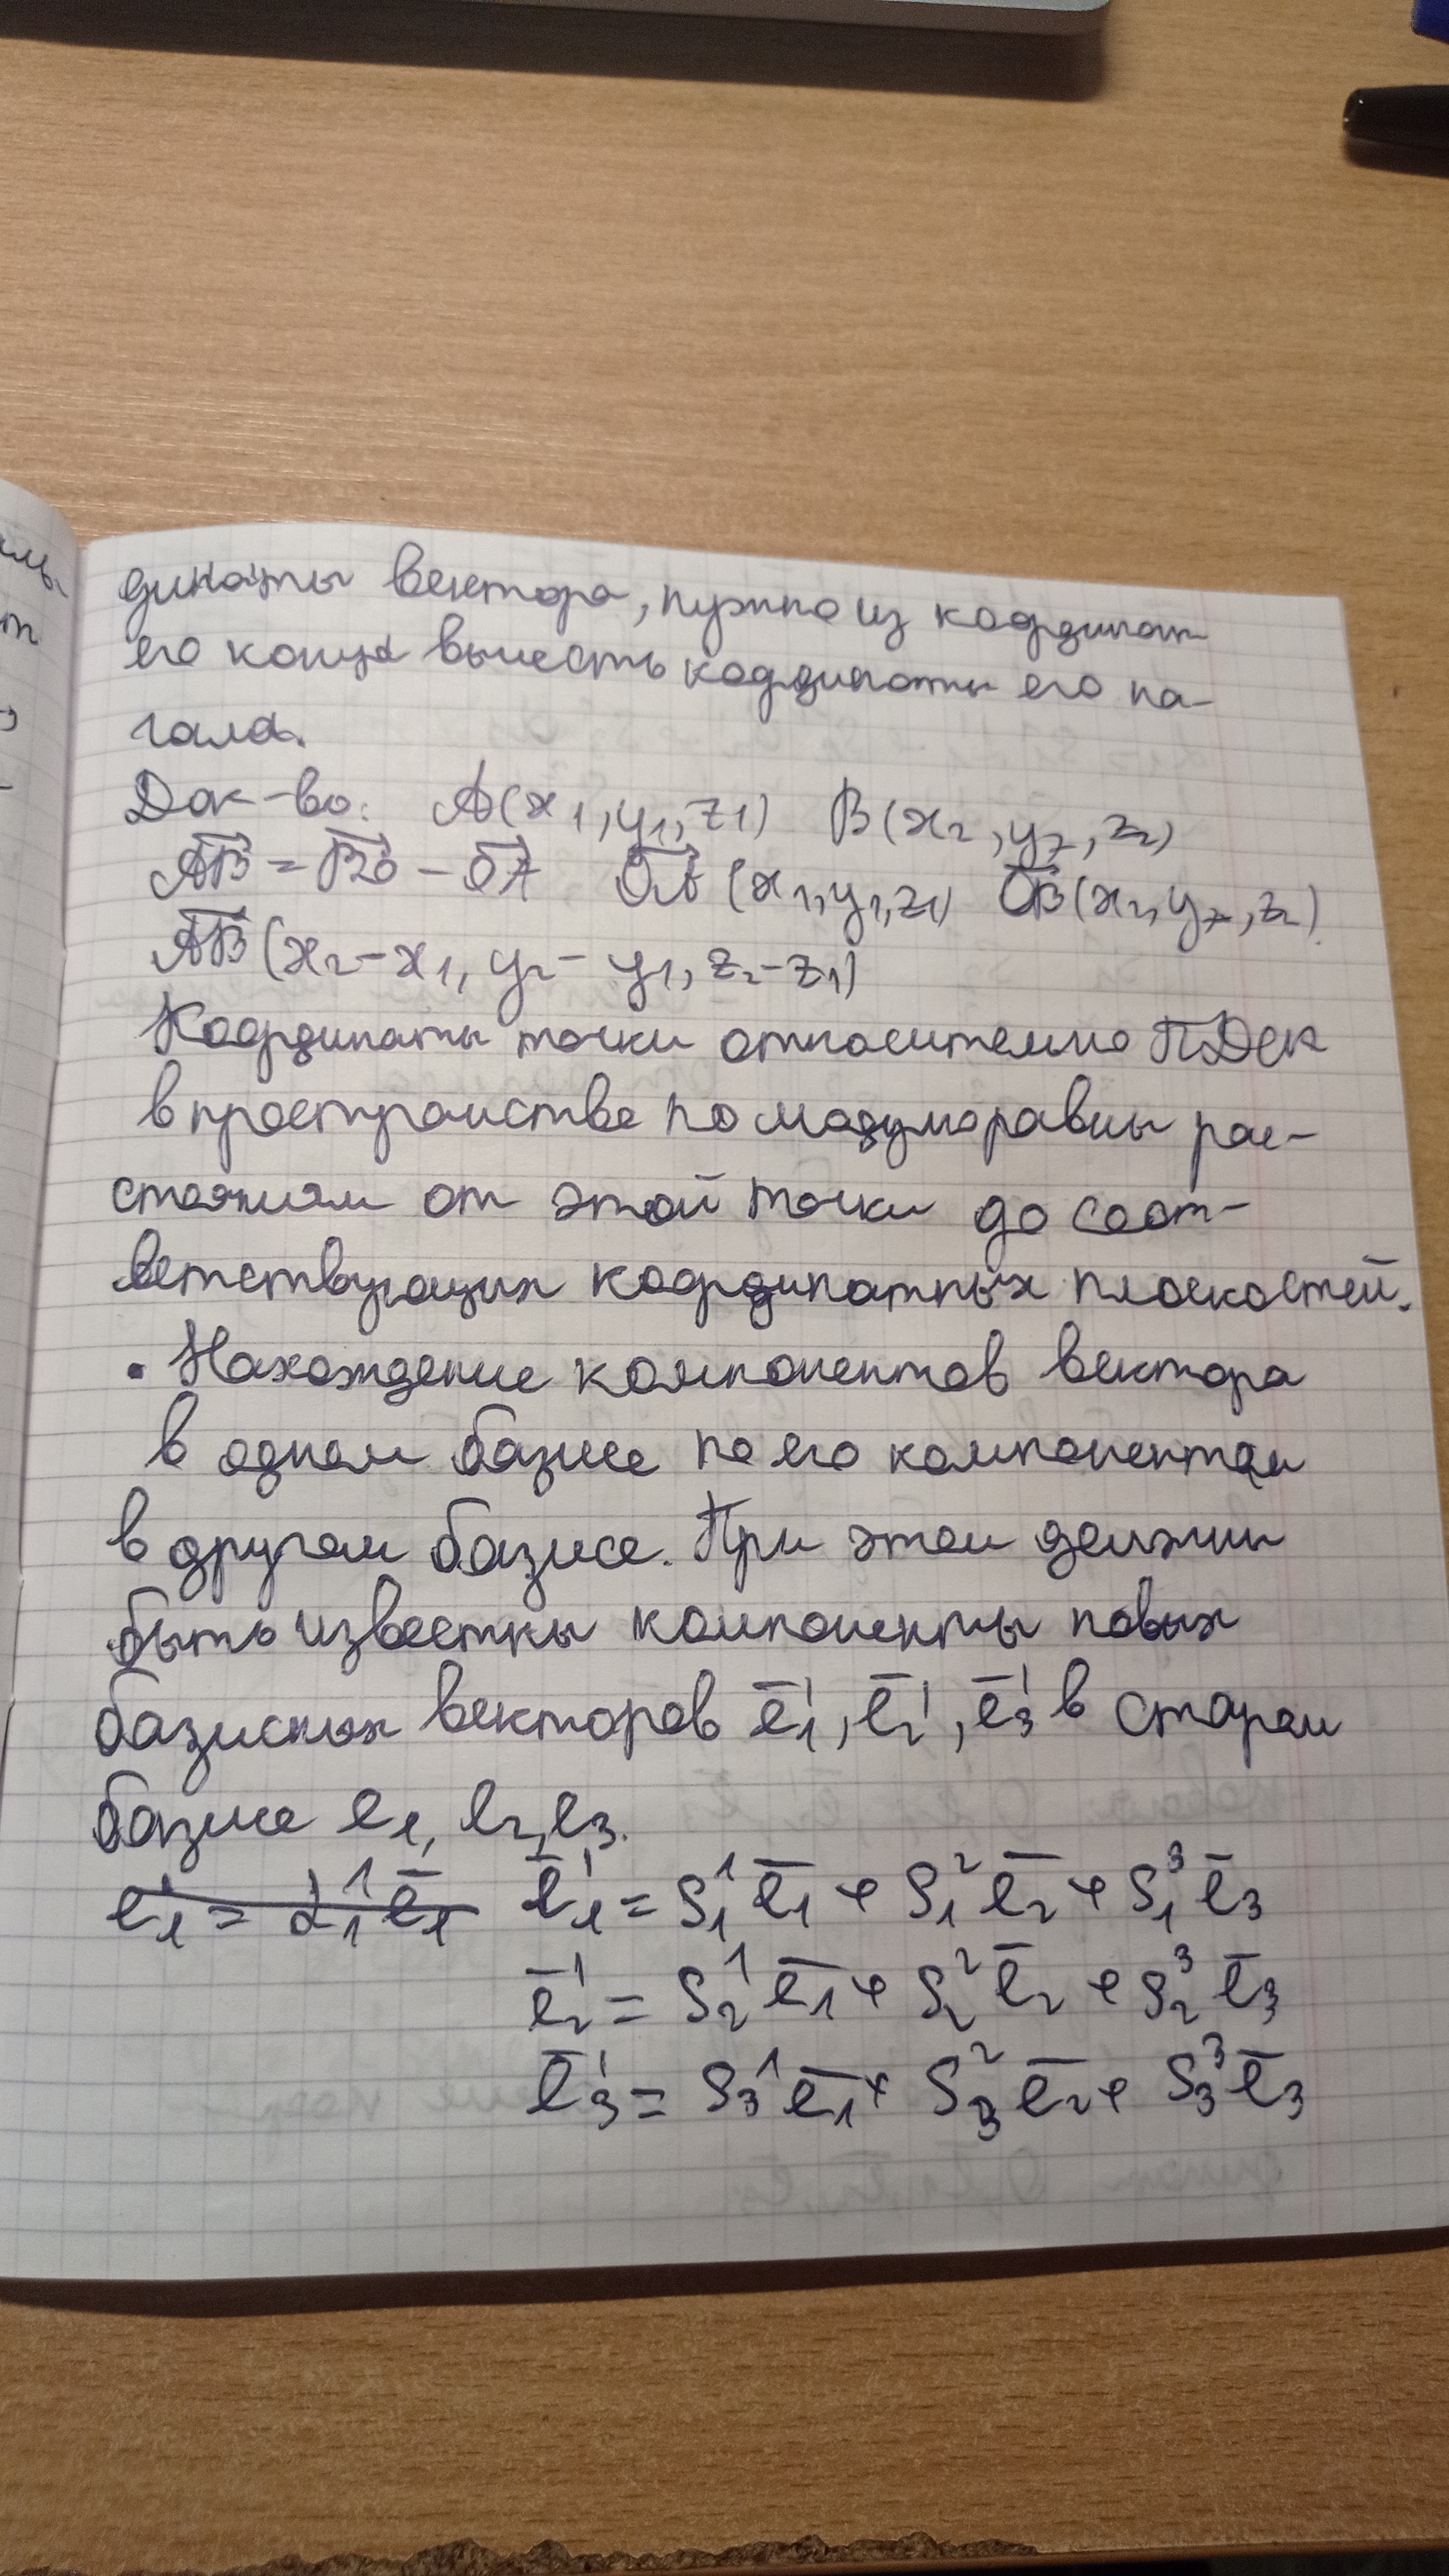 динаты вектора, нужно из координат
его конца вычесть координаты его на-
чала.
Док-во: A(x₁, y₁, z₁) B(x₂, y₂, z₂)
AB = BO - OA OA (x₁, y₁, z₁) OB (x₂, y₂, z₂)
AB (x₂-x₁, y₂-y₁, z₂-z₁)
Координаты точки относительно ПДСК
в пространстве по модулю равны рас-
стояниям от этой точки до соот-
ветствующих координатных плоскостей.
• Нахождение компонентов вектора
в одном базисе по его компонентам
в другом базисе. При этом должны
быть известны компоненты новых
базисных векторов e̅₁', e̅₂', e̅₃' в старом
базисе e₁, e₂, e₃.
e̅₁' = S₁¹ e̅₁ + S₁² e̅₂ + S₁³ e̅₃
e̅₂' = S₂¹ e̅₁ + S₂² e̅₂ + S₂³ e̅₃
e̅₃' = S₃¹ e̅₁ + S₃² e̅₂ + S₃³ e̅₃